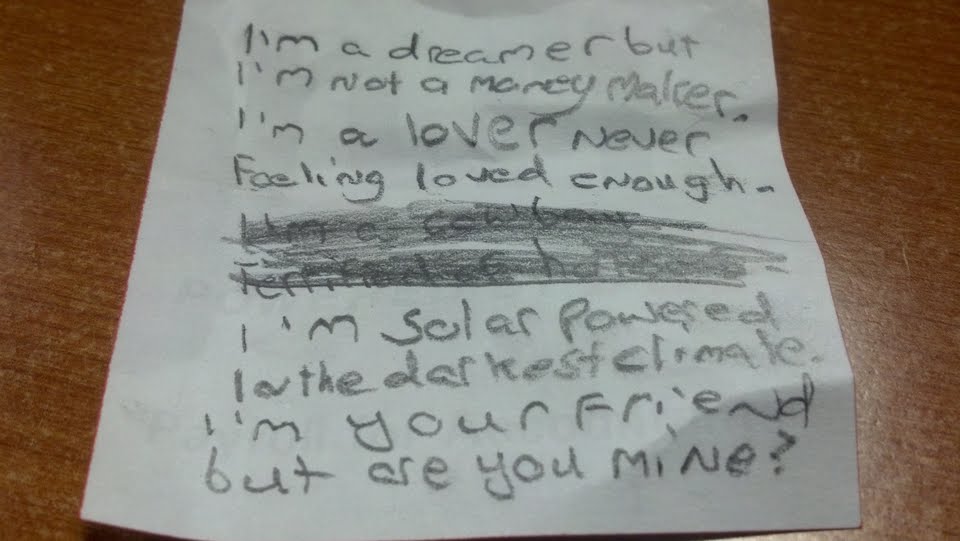 I'm a dreamer but
I'm not a money maker.
I'm a lover never
Feeling loved enough.
I'm a cowboy
Terrified of horses
I'm solar powered
In the darkest climate.
I'm your friend
but are you mine?